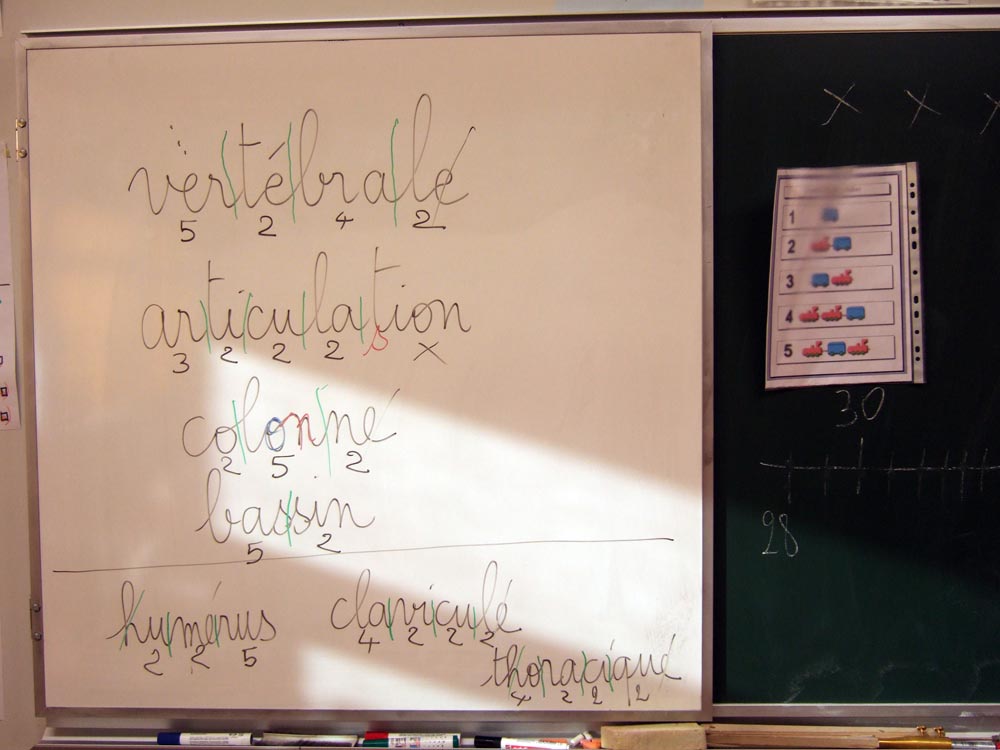 vertébrale
5 2 4 2
articulation
3 2 2 2 s x
colonne
2 5 2
bassin
5 2
humérus claviculé
2 2 5 4 2 2 2
thoracique
4 2 2 2
x x x
1
2
3
4
5
30
28